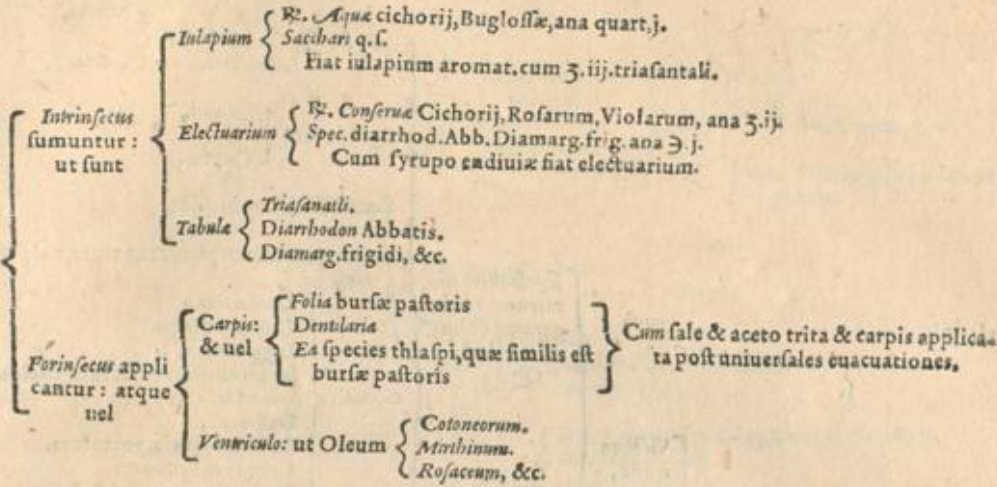 ℞. Aquæ cichorij, Bugloſſæ, ana quart. j.
Iulapium
Sacchari q. ſ.
Fiat iulapium aromat. cum ʒ. iij. triaſantali.
Intrinſecus
ſumuntur :
ut ſunt
℞. Conſeruæ Cichorij, Roſarum, Violarum, ana ʒ. ij.
Electuarium
Spec. diarrhod. Abb. Diamarg. frig. ana ℈. j.
Cum ſyrupo endiuiæ fiat electuarium.
Tabulæ
Triaſantali.
Diarrhodon Abbatis.
Diamarg. frigidi, &c.
Forinſecus appli
cantur : atque
uel
Carpis:
& uel
Folia burſæ paſtoris
Dentilaria
Ea ſpecies thlaſpi, quæ ſimilis eſt
burſæ paſtoris
Cum ſale & aceto trita & carpis applica-
ta poſt uniuerſales euacuationes.
Ventriculo: ut Oleum
Cotoneorum.
Mirthinum.
Roſaceum, &c.